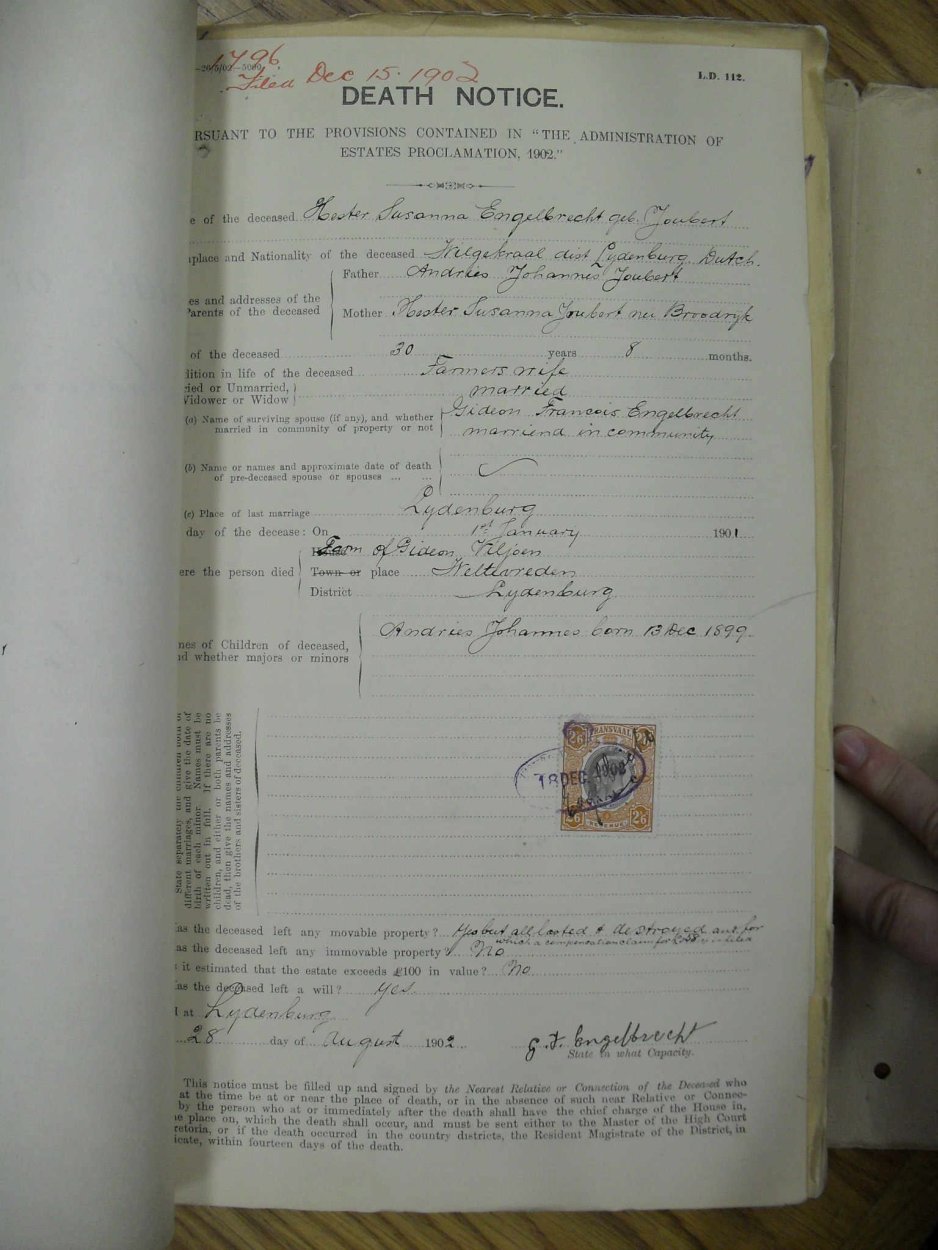 1796.
—20/5/02—5000
Filed Dec 15. 1902
L.D. 112.
DEATH NOTICE.
RSUANT TO THE PROVISIONS CONTAINED IN "THE ADMINISTRATION OF
ESTATES PROCLAMATION, 1902."
e of the deceased Hester Susanna Engelbrecht geb. Joubert
place and Nationality of the deceased Wilgekraal dist Lydenburg. Dutch.
es and addresses of the Parents of the deceased
Father Andries Johannes Joubert
Mother Hester Susanna Joubert nee Broodryk
of the deceased 30 years 8 months.
dition in life of the deceased Farmers wife
ried or Unmarried, married
Widower or Widow
(a) Name of surviving spouse (if any), and whether Gideon Francois Engelbrecht
married in community of property or not marriend in community
(b) Name or names and approximate date of death
of pre-deceased spouse or spouses ... ...
(c) Place of last marriage Lydenburg
day of the decease: On 1st January 1901
House Farm of Gideon Viljoen
ere the person died Town or place Weltevreden
District Lydenburg
Andries Johannes born 13 Dec 1899.
nes of Children of deceased,
d whether majors or minors
State separately the children born of
different marriages, and give the date of
birth of each minor. Names must be
written out in full. If there are no
children, and either or both parents be
dead, then give the names and addresses
of the brothers and sisters of deceased.
TRANSVAAL
2/6
18 DEC 1902
2/6 2/6
as the deceased left any movable property? Yes but all looted & destroyed and for
which a compensation claim for is filed
as the deceased left any immovable property? No
it estimated that the estate exceeds £100 in value? No
as the deceased left a will? Yes.
at Lydenburg
28 day of August 1902
G. F. Engelbrecht
State in what Capacity.
This notice must be filled up and signed by the Nearest Relative or Connection of the Deceased who
at the time be at or near the place of death, or in the absence of such near Relative or Connec-
by the person who at or immediately after the death shall have the chief charge of the House in,
e place on, which the death shall occur, and must be sent either to the Master of the High Court
retoria, or if the death occurred in the country districts, the Resident Magistrate of the District, in
icate, within fourteen days of the death.